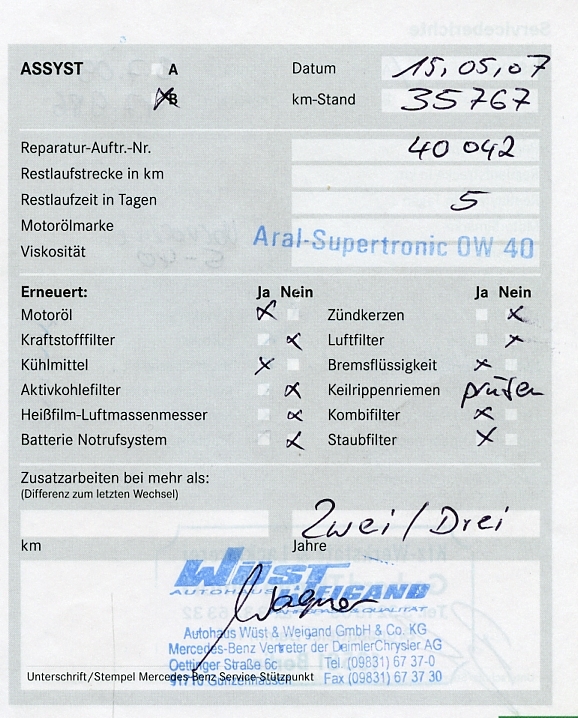 ASSYST A Datum 15.05.07
B km-Stand 35767
Reparatur-Auftr.-Nr. 40 042
Restlaufstrecke in km
Restlaufzeit in Tagen 5
Motorölmarke
Viskosität Aral-Supertronic 0W 40
Erneuert: Ja Nein Ja Nein
Motoröl x Zündkerzen x
Kraftstofffilter x Luftfilter x
Kühlmittel x Bremsflüssigkeit x
Aktivkohlefilter x Keilrippenriemen prüfen
Heißfilm-Luftmassenmesser x Kombifilter x
Batterie Notrufsystem x Staubfilter x
Zusatzarbeiten bei mehr als:
(Differenz zum letzten Wechsel)
Zwei / Drei
km Jahre
WÜST
AUTOHAUS WEIGAND
Wagner QUALITÄT
Autohaus Wüst & Weigand GmbH & Co. KG
Mercedes-Benz Vertreter der DaimlerChrysler AG
Oettinger Straße 6c Tel. (09831) 67 37-0
91710 Gunzenhausen Fax (09831) 67 37 30
Unterschrift/Stempel Mercedes-Benz Service-Stützpunkt